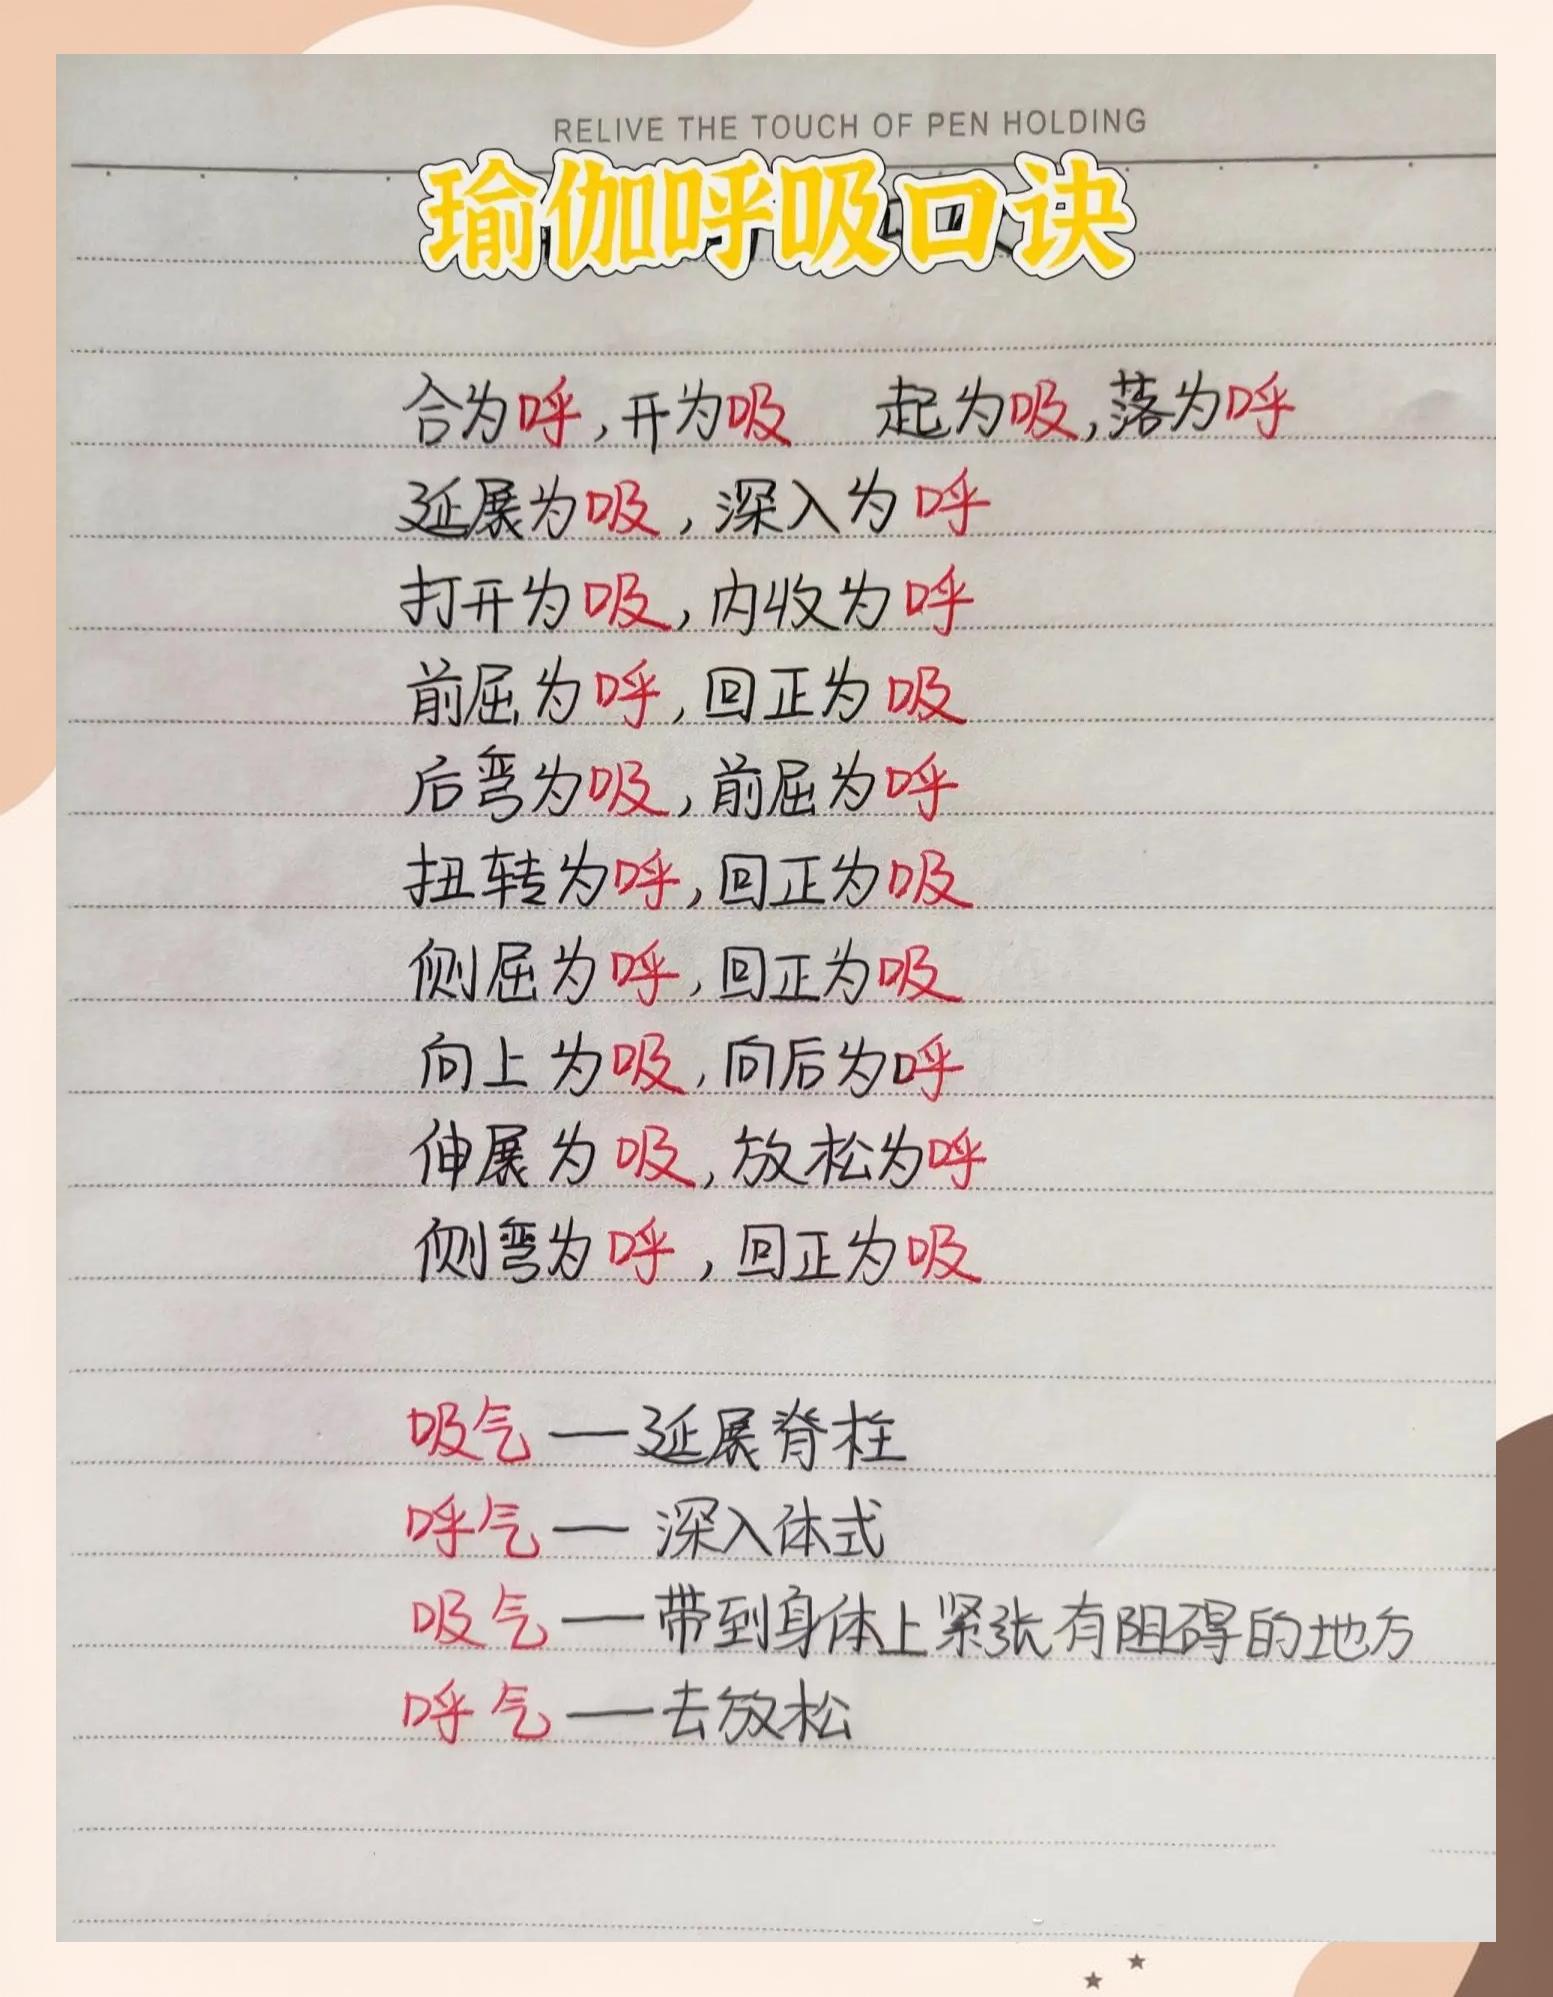 RELIVE THE TOUCH OF PEN HOLDING
瑜伽呼吸口诀
合为呼,开为吸 起为吸,落为呼
延展为吸,深入为呼
打开为吸,内收为呼
前屈为呼,回正为吸
后弯为吸,前屈为呼
扭转为呼,回正为吸
侧屈为呼,回正为吸
向上为吸,向后为呼
伸展为吸,放松为呼
侧弯为呼,回正为吸
吸气—延展脊柱
呼气—深入体式
吸气—带到身体上紧张有阻碍的地方
呼气—去放松